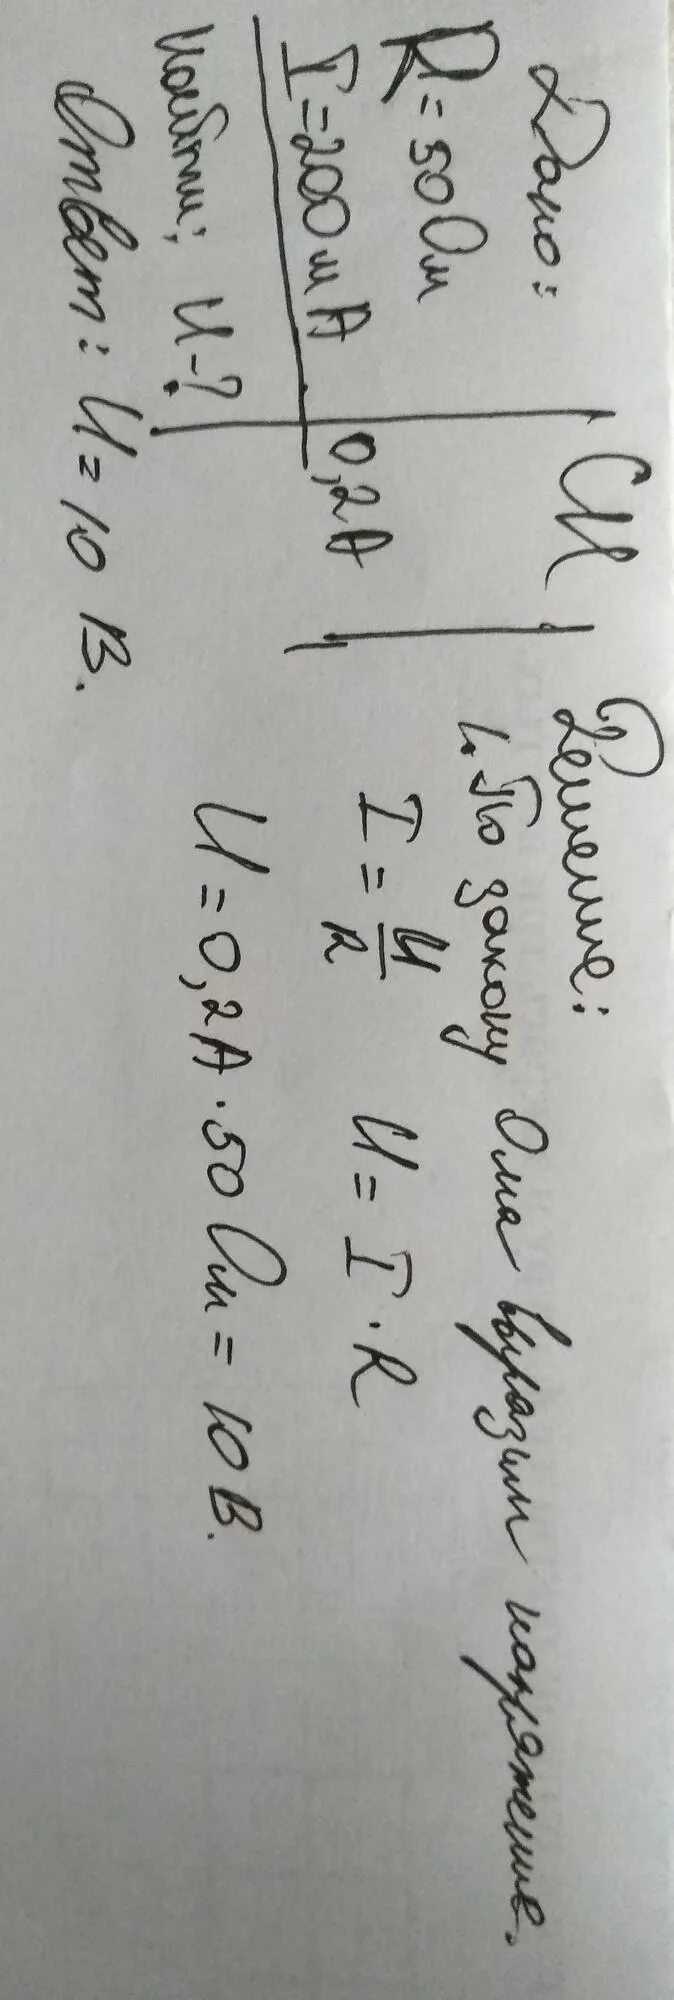 Дано:
R = 50 Ом
I = 200 мА
Найти: U - ?
СИ
0,2 А
Решение:
1. По закону Ома выразим напряжение.
I = U/R U = I · R
U = 0,2 А · 50 Ом = 10 В.
Ответ: U = 10 В.